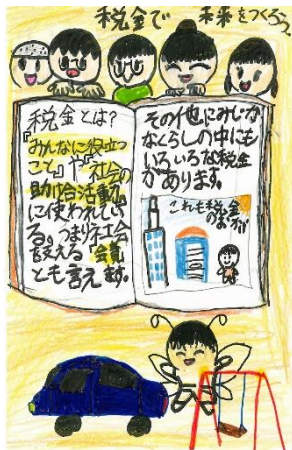 税金で 未来をつくろう
税金とは?
『みんなに役立つ
こと』や『社会の
助け合活動』
に使われてい
る。つまり社会
を支える 会費
とも言えます。
その他にみじか
なくらしの中にも
いろいろな税金
があります。
これも税金
のまちが